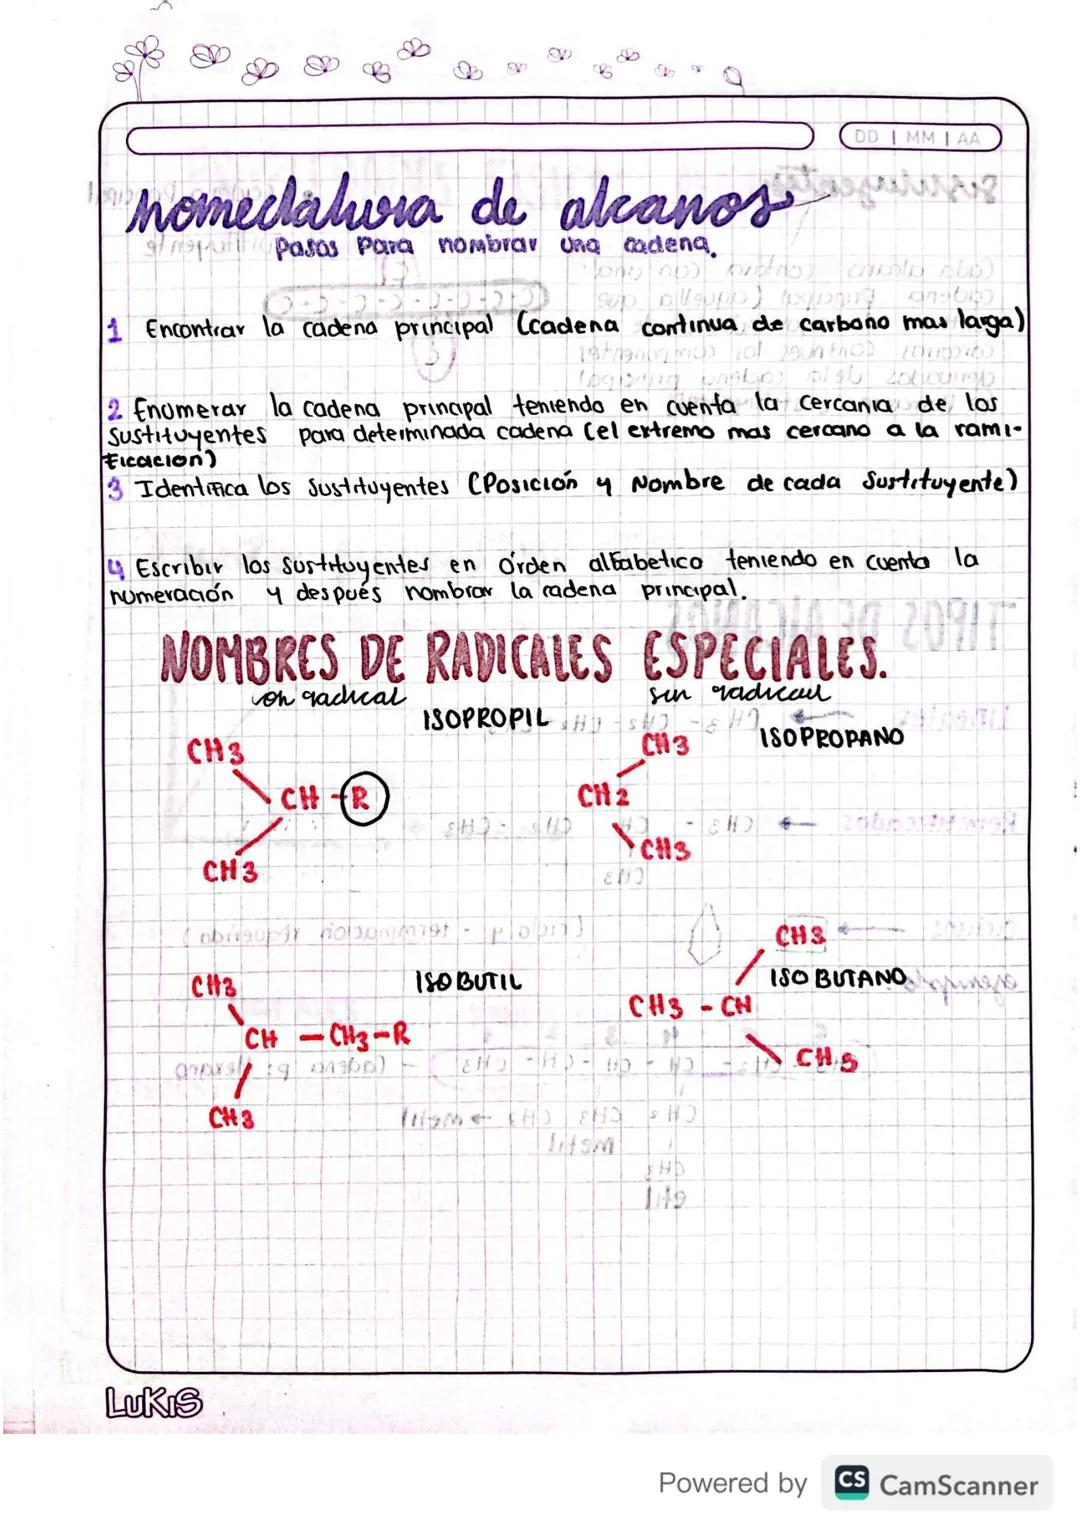 DD | MM | AA
nomeclatura de alcanos
Pasos Para nombrar una cadena.
1 Encontrar la cadena principal (cadena continua de carbono mas larga)
2 Enumerar la cadena principal teniendo en cuenta la cercania de los
Sustituyentes para determinada cadena (el extremo mas cercano a la rami-
ficacion)
3 Identifica los Sustituyentes (Posición y Nombre de cada Sustituyente)
4 Escribir los Sustituyentes en órden alfabetico teniendo en cuenta la
numeración y después nombrar la cadena principal.
NOMBRES DE RADICALES ESPECIALES.
con radical sin radical
ISOPROPIL
CH3 CH3 ISOPROPANO
CH - R CH2
CH3 CH3
CH3
CH3 ISOBUTIL ISO BUTANO
CH3 - CH
CH - CH3 - R
CH3
CH3
LUKIS
Powered by CS CamScanner